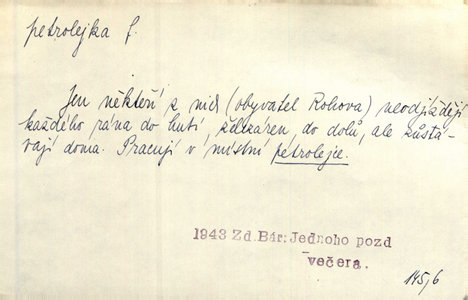 petrolejka f.
Jen někteří z nich (obyvatel Rohova) neodjíždějí
každého rána do hutí, želézáren, do dolů, ale zůstá-
vají doma. Pracují v místní petrolejce.
1943 Zd.Bár:Jednoho pozd
večera.
145/6